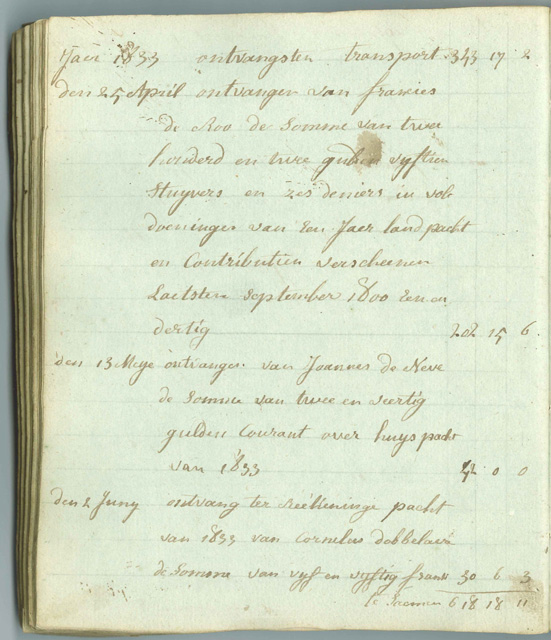 Jaer 1833 ontvangsten transport 343 17 2
den 25 April ontvangen van francies
de Roo de Somme van twee
honderd en twee gulden vyftien
Stuyvers en zes deniers in vol
doeninge van Een Jaer land pacht
en Contributien verscheenen
Laetsten September 1800 Een en
dertig 202 15 6
den 13 Meye ontvangen van Joannes de Neve
de Somme van twee en veertig
gulden Courant over huys pacht
van 1833 42 0 0
den 2 Juny ontvang ter Reekeninge pacht
van 1833 van Cornelus dobbelaere
de Somme van vyf en vyftig frank 30 6 3
te Saemen 618 18 11